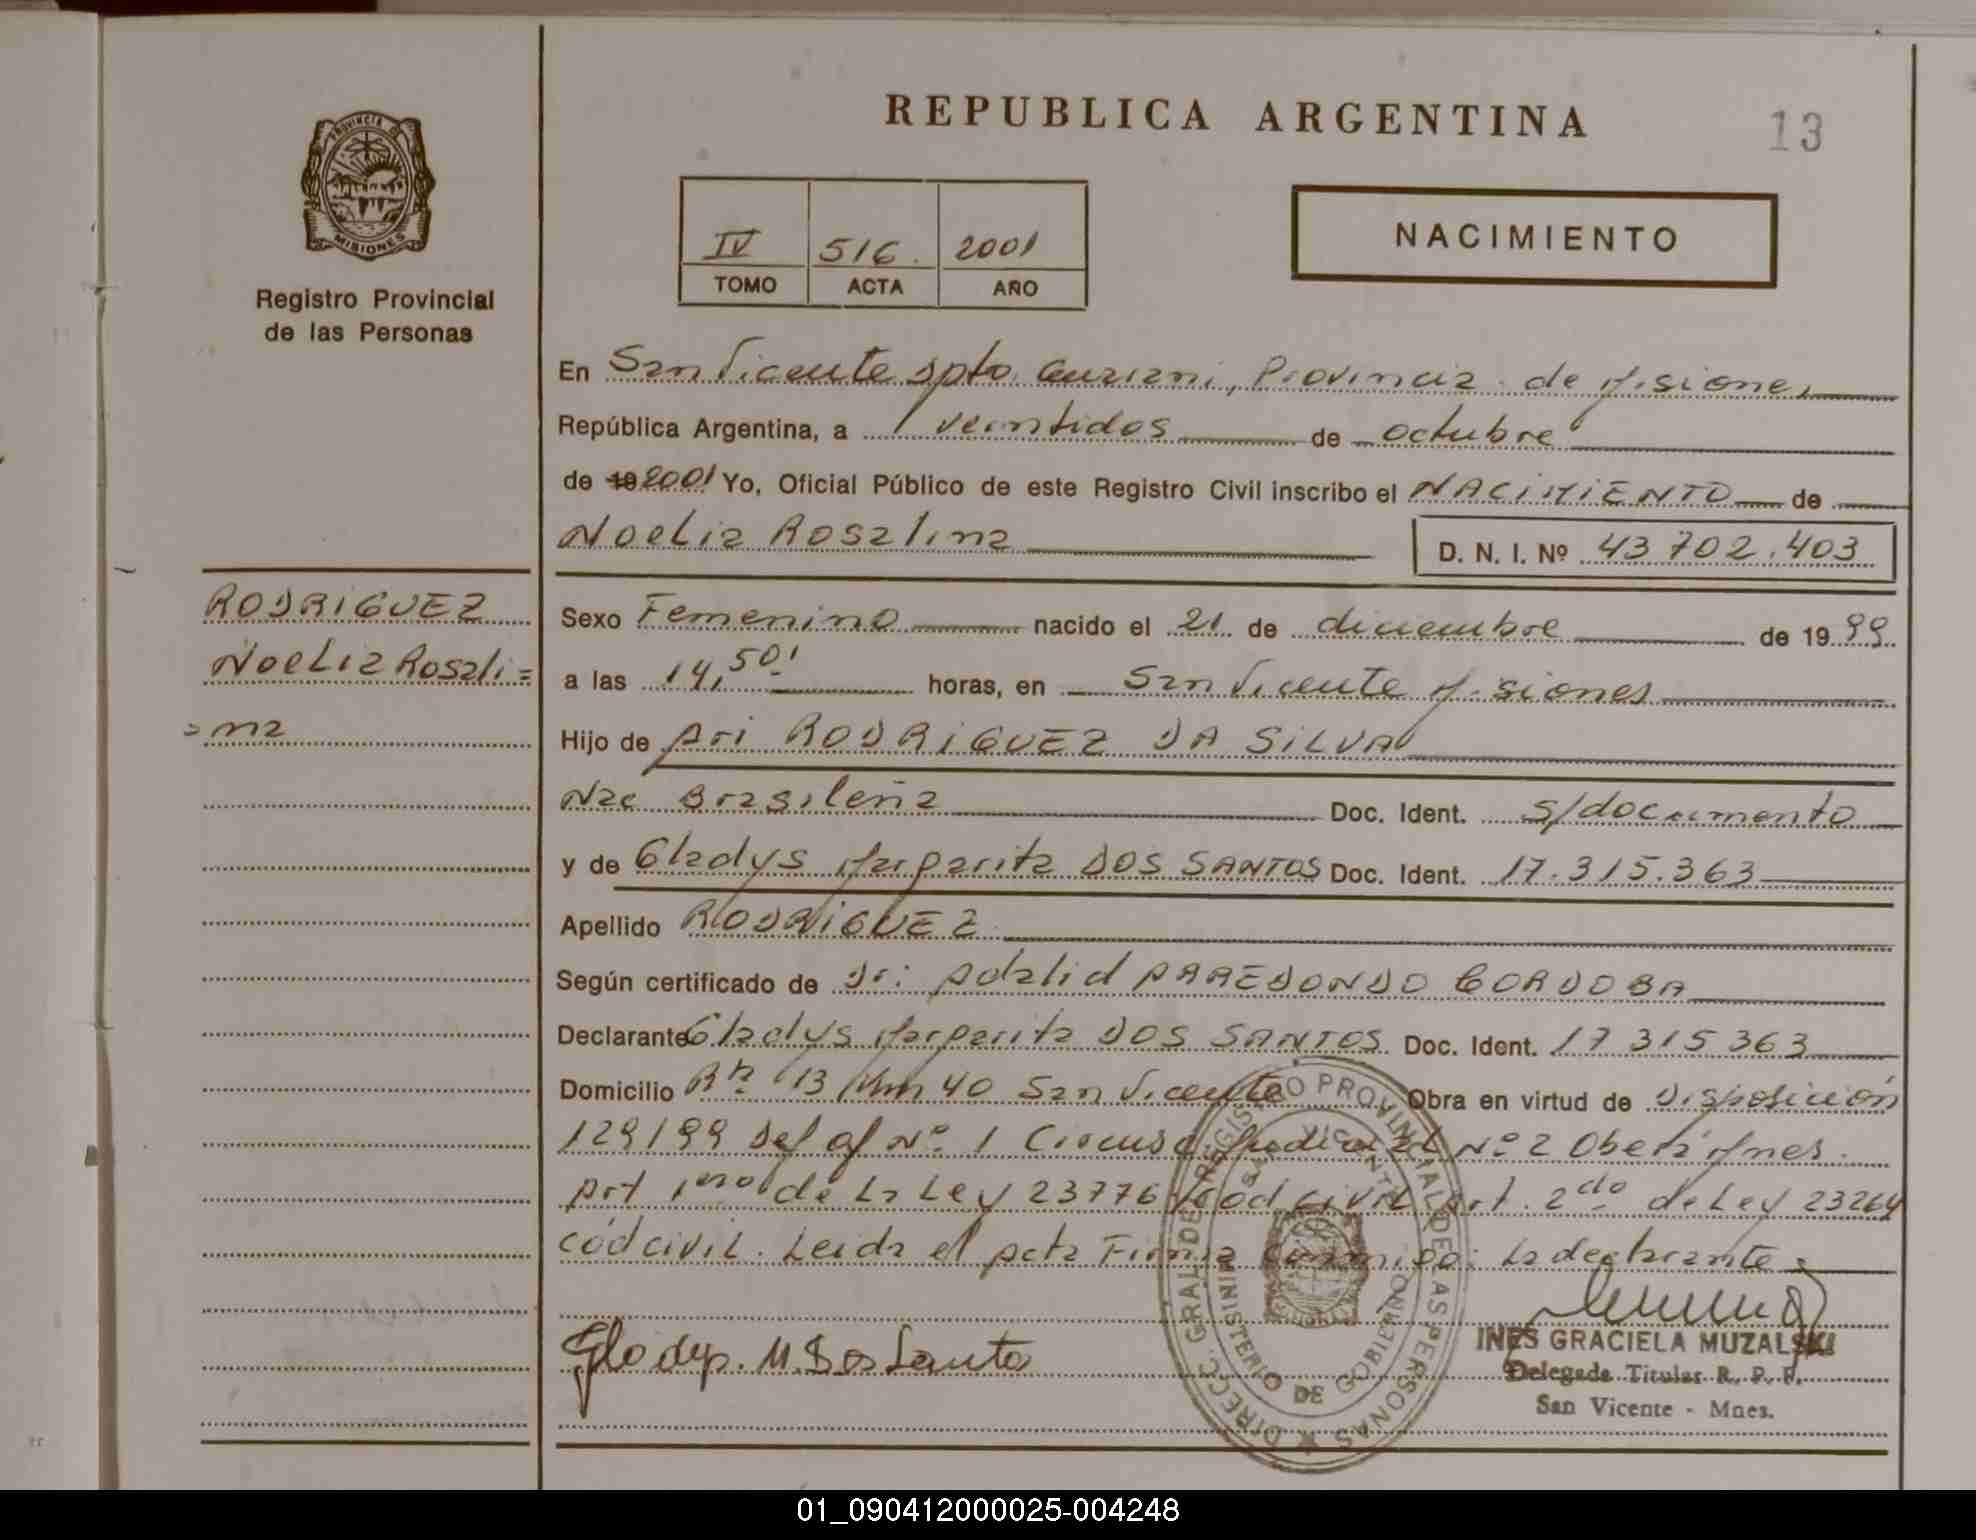 REPUBLICA ARGENTINA
13
PROVINCIA DE
MISIONES
Registro Provincial
de las Personas
IV 516. 2001
TOMO ACTA AÑO
NACIMIENTO
En San Vicente Dpto. Guarani, Provincia de Misiones
República Argentina, a veintidos de octubre
de 19 2001 Yo, Oficial Público de este Registro Civil inscribo el NACIMIENTO de
Noelia Rosalina
D. N. I. Nº 43 702.403
RODRIGUEZ
Noelia Rosali=
=na
Sexo Femenino nacido el 21 de diciembre de 19 99
a las 14,50' horas, en San Vicente Misiones
Hijo de Ari RODRIGUEZ DA SILVA
Nac Brasileña Doc. Ident. s/documento
y de Gladys Margarita DOS SANTOS Doc. Ident. 17.315.363
Apellido RODRIGUEZ
Según certificado de Dr: Adalid ARREDONDO CORDOBA
Declarante Gladys Margarita DOS SANTOS Doc. Ident. 17 315 363
Domicilio Rta 13 Km 40 San Vicente Obra en virtud de Disposición
129/99 Def of Nº 1 Circunsc. Judicial Nº 2 Oberá Mnes.
Art 1ero de la Ley 23776 cod civil Art. 2do de Ley 23264
cód civil. Leida el acta Firma conmigo: la declarante
Gladys. M. Dos Santos
DIRECC. GRAL. DE REGISTRO PROVINCIAL DE LAS PERSONAS
SAN VICENTE
MINISTERIO DE GOBIERNO
INES GRACIELA MUZALSKI
Delegada Titular R. P. P.
San Vicente - Mnes.
01_090412000025-004248